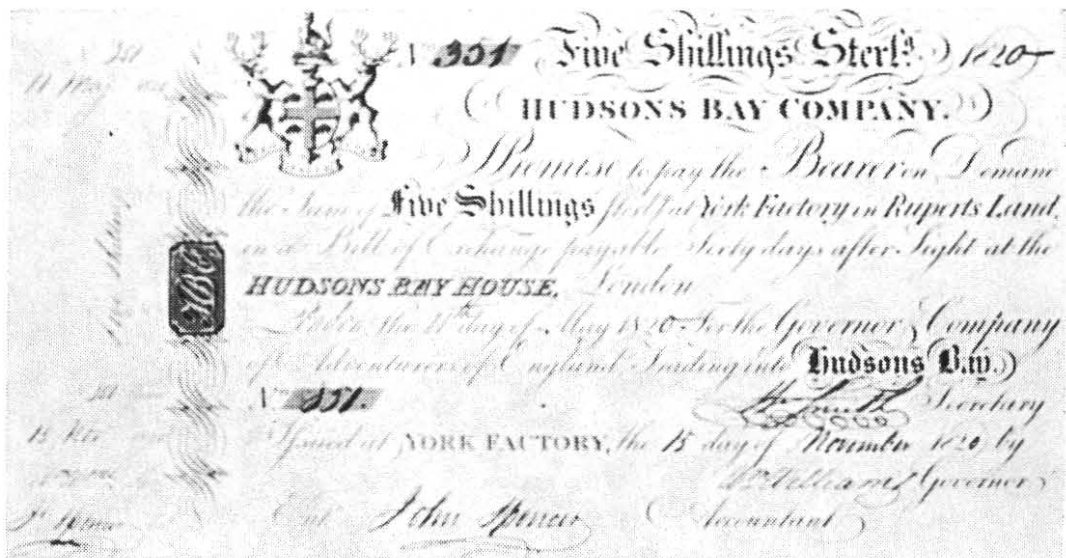 No 351 Five Shillings Sterlg. 1820
HUDSONS BAY COMPANY.
I Promise to pay the Bearer on Demand
the Sum of Five Shillings Sterlg. at York Factory in Ruperts Land,
in a Bill of Exchange payable Sixty days after Sight at the
HUDSONS BAY HOUSE, London
the day of May 1820 For the Governor & Company
of Adventurers of England Trading into Hudsons Bay.
No 351. Wm Smith Secretary
Issued at YORK FACTORY, the 15 day of November 1820 by
Wm Williams Governor
Entd. John Spencer Accountant
351
Five Shillings
HBC
351
15